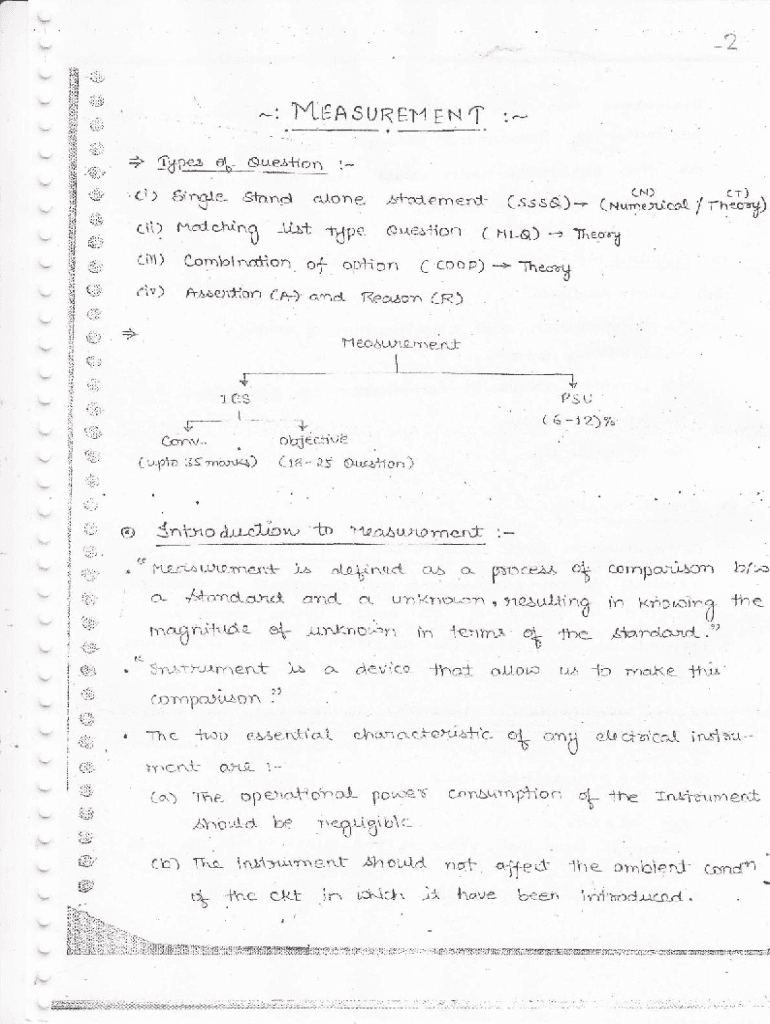 -2
~: MEASUREMENT :~
⇒ Types of Question :-
(i) Single Stand alone statement (SSSQ) → (Numerical (N) / Theory (T))
(ii) Matching List type Question (MLQ) → Theory
(iii) Combination of option (COOP) → Theory
(iv) Assertion (A) and Reason (R)
⇒
Measurement
IES PSU
(6-12)%
Conv.. Objective
(upto 35 marks) (18-25 Question)
Introduction to Measurement :-
• "Measurement is defined as a process of comparison b/w
a standard and a unknown, resulting in knowing the
magnitude of unknown in terms of the standard."
• "Instrument is a device that allow us to make this
comparison."
• The two essential characteristic of any electrical instru-
ment are :-
(a) The operational power consumption of the Instrument
should be negligible
(b) The instrument should not affect the ambient condn
of the ckt in which it have been introduced.